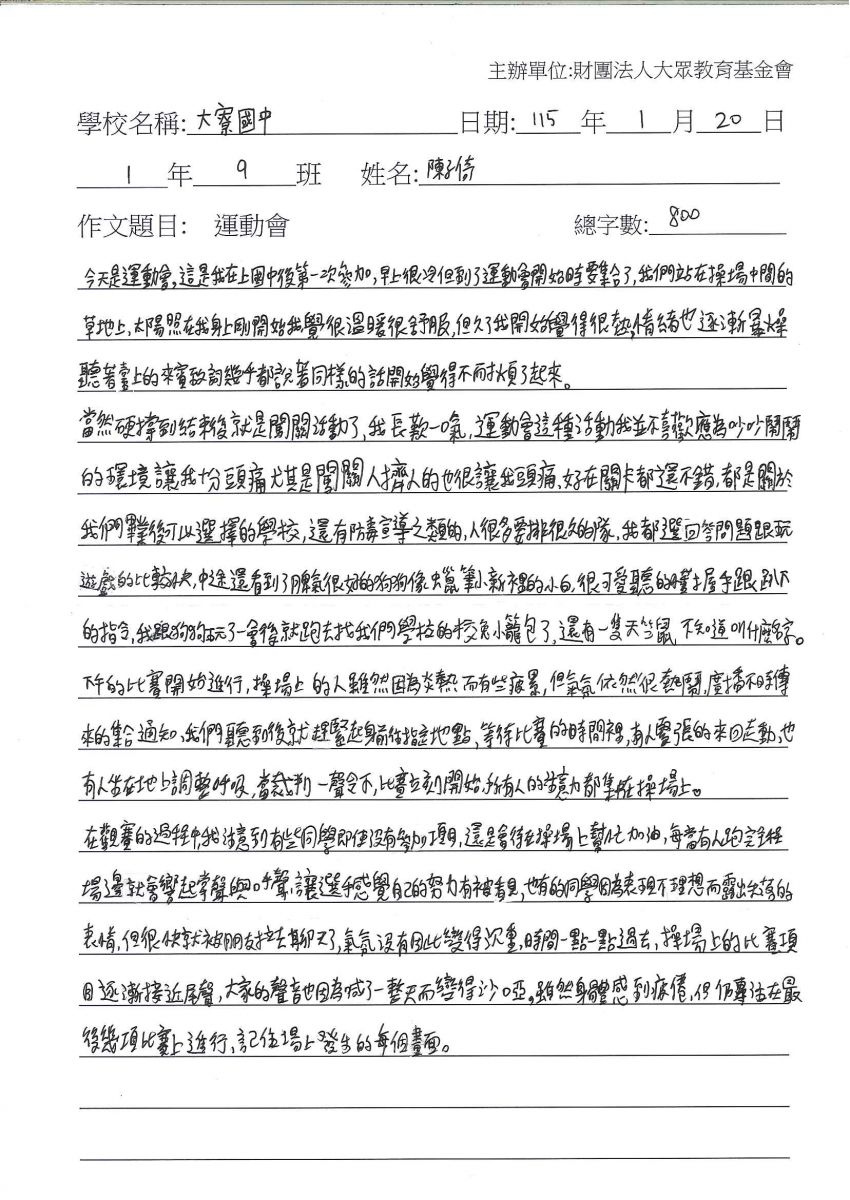 主辦單位:財團法人大眾教育基金會
學校名稱: 大寮國中 日期: 115 年 1 月 20 日
1 年 9 班 姓名: 陳子倚
作文題目: 運動會 總字數: 800
今天是運動會,這是我在上國中後第一次參加,早上很冷但到了運動會開始時要集合了,我們站在操場中間的
草地上,太陽照在我身上剛開始我覺很溫暖很舒服,但久了我開始覺得很熱,情緒也逐漸暴燥
聽著臺上的來賓致詞幾乎都說著同樣的話開始覺得不耐煩了起來。
當然硬撐到結束後就是闖關活動了,我長歎一口氣,運動會這種活動我並不喜歡應為吵吵鬧鬧
的環境讓我十分頭痛尤其是闖關人擠人的也很讓我頭痛,好在關卡都還不錯,都是關於
我們畢業後可以選擇的學校,還有防毒宣導之類的,人很多要排很久的隊,我都選回答問題跟玩
遊戲的比較快,中途還看到了脾氣很好的狗狗像蠟筆小新裡的小白,很可愛聽的懂握手跟趴下
的指令,我跟狗狗玩了一會後就跑去找我們學校的校兔小籠包了,還有一隻天竺鼠 不知道叫什麼名字。
下午的比賽開始進行,操場上的人雖然因為炎熱而有些疲累,但氣氛依然很熱鬧,廣播不時傳
來的集合通知,我們聽到後就趕緊起身前往指定地點,等待比賽的時間裡,有人緊張的來回走動,也
有人坐在地上調整呼吸,當裁判一聲令下,比賽立刻開始,所有人的注意力都集在操場上。
在觀賽的過程中,我注意到有些同學即使沒有參加項目,還是會待在操場上幫忙加油,每當有人跑完全程
場邊就會響起掌聲與呼聲,讓選手感覺自己的努力有被看見,也有的同學因為表現不理想而露出失落的
表情,但很快就被朋友拉去聊天了,氣氛沒有因此變得沉重,時間一點一點過去,操場上的比賽項
目逐漸接近尾聲,大家的聲音也因為喊了一整天而變得沙啞。雖然身體感到疲倦,但仍專注在最
後幾項比賽上進行,記住場上發生的每個畫面。